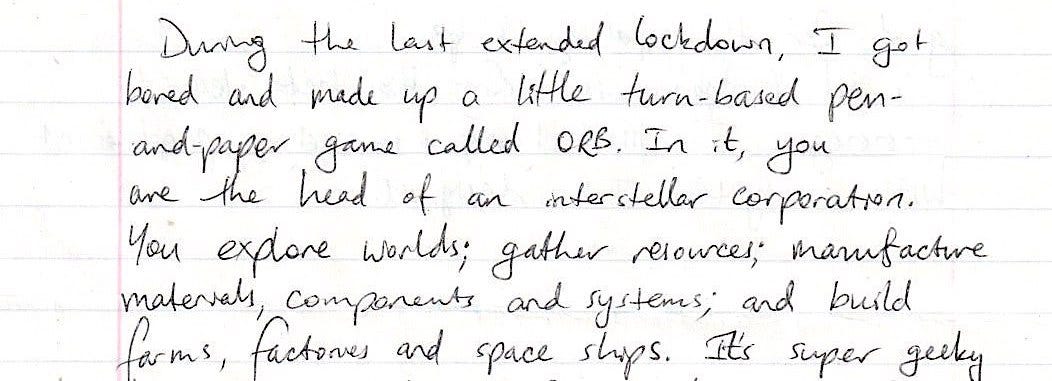 During the last extended lockdown, I got
bored and made up a little turn-based pen-
and-paper game called ORB. In it, you
are the head of an interstellar corporation.
You explore worlds; gather resources; manufacture
materials, components and systems; and build
farms, factories and space ships. It's super geeky